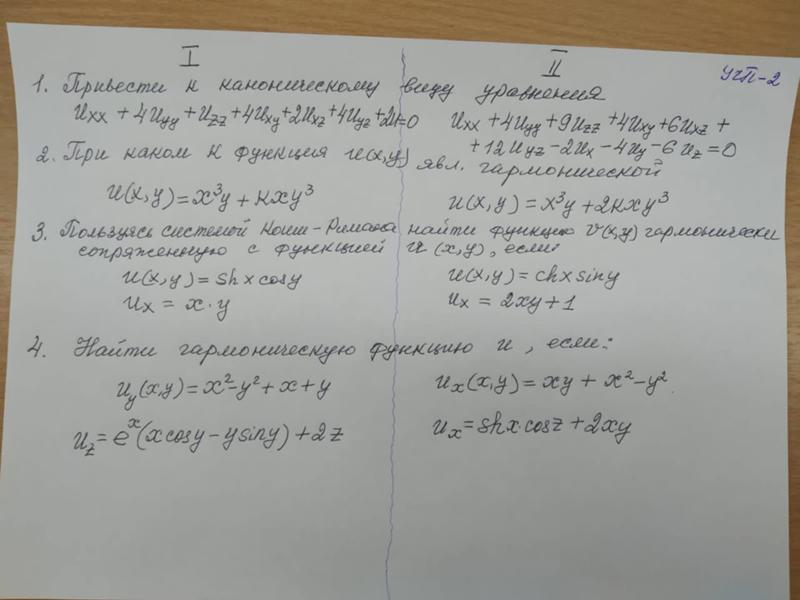 I
II
УЧП-2
1. Привести к каноническому виду уравнения
Uxx + 4Uyy + Uzz + 4Uxy + 2Uxz + 4Uyz + 2U = 0
Uxx + 4Uyy + 9Uzz + 4Uxy + 6Uxz +
+ 12Uyz - 2Ux - 4Uy - 6Uz = 0
2. При каком К функция u(x,y) явл. гармонической
u(x,y) = x³y + кxy³
u(x,y) = x³y + 2кxy³
3. Пользуясь системой Коши-Римана найти функцию v(x,y) гармонически
сопряженную с функцией u(x,y), если:
u(x,y) = shx cosy
u(x,y) = chx siny
ux = x·y
ux = 2xy + 1
4. Найти гармоническую функцию u, если:
uy(x,y) = x² - y² + x + y
ux(x,y) = xy + x² - y²
uz = eˣ(x cosy - y siny) + 2z
ux = shx·cosz + 2xy